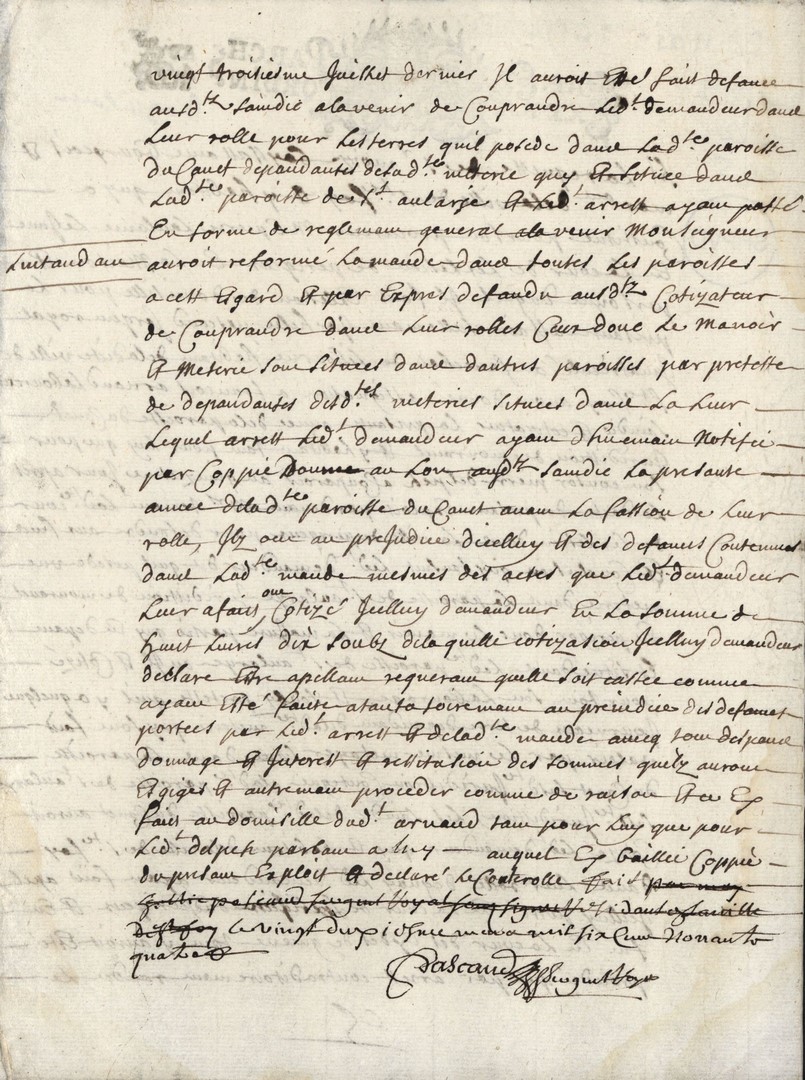 vingt troisiesme Juilhet dernier Il auroit esté faict defance
ausd.tz saindic a ladvenir de Couprandre Led.t demandeur dans
Leur rolle pour Les terres quil posede dans Lad.te paroisse
du Canet depandantes de lad.te meterie quy est située dans
Lad.te paroisse de S.t aularje et Led.t arrest ayant passé
En forme de reglemant general a la venir Monseigneur
Lintandant auroit reformé La mande dans toutes Les paroisses
a cest Esgard et par Expres defandu ausd.tz Cotizateurs
de Couprandre dans Leur rolles Ceux donc Le Manoir
et Meterie sont situees dans dautres paroisses par pretexte
de depandantes desd.tes meteries situees dans La Leur
Lequel arrest Led.t demandeur ayant Notiffié
par Coppie Donnee au ausd.tz saindic La presante
année de lad.te paroisse du Canet avant La fassion de Leur
rolle, Ilz ont au prejudice dicelluy et des defances Contenues
dans Lad.te mande mesmes des actes que Led.t demandeur
Leur a faits, ont Cotizé Icelluy demandeur En La somme de
huit Livres dix soubz de laquelle cotization Icelluy demandeur
declare Estre apellant requerant quelle soit cassée comme
ayant esté faite atantatoiremant au prejudice des defances
portees par Led.t arrest et de lad.te mande avecq tous despans
domage et Interest et restitution des sommes quilz auront
Exigées et autremant proceder comme de raison et ce Ex
faict au domicille dud.t arnaud tant pour Luy que pour
Led.t delpeh parlant a luy — auquel Ex baillé Coppie
du presant Exploit et declaré Le Conterolle fait par moy
Pascaud sergent Royal soubz signé residant
le vingt du mars mil six Cens Nonante
quatre
Pascaud sergent Royal